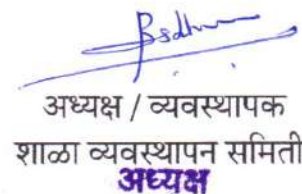 अध्यक्ष / व्यवस्थापक
शाळा व्यवस्थापन समिती
अध्यक्ष